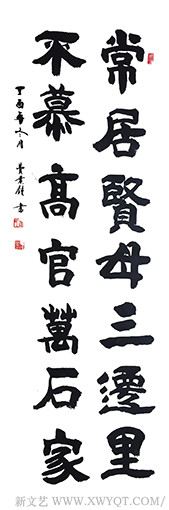 常居賢母三遷里
不慕高官萬石家
丁酉年冬月
書
新文艺 WWW.XWYQT.COM/